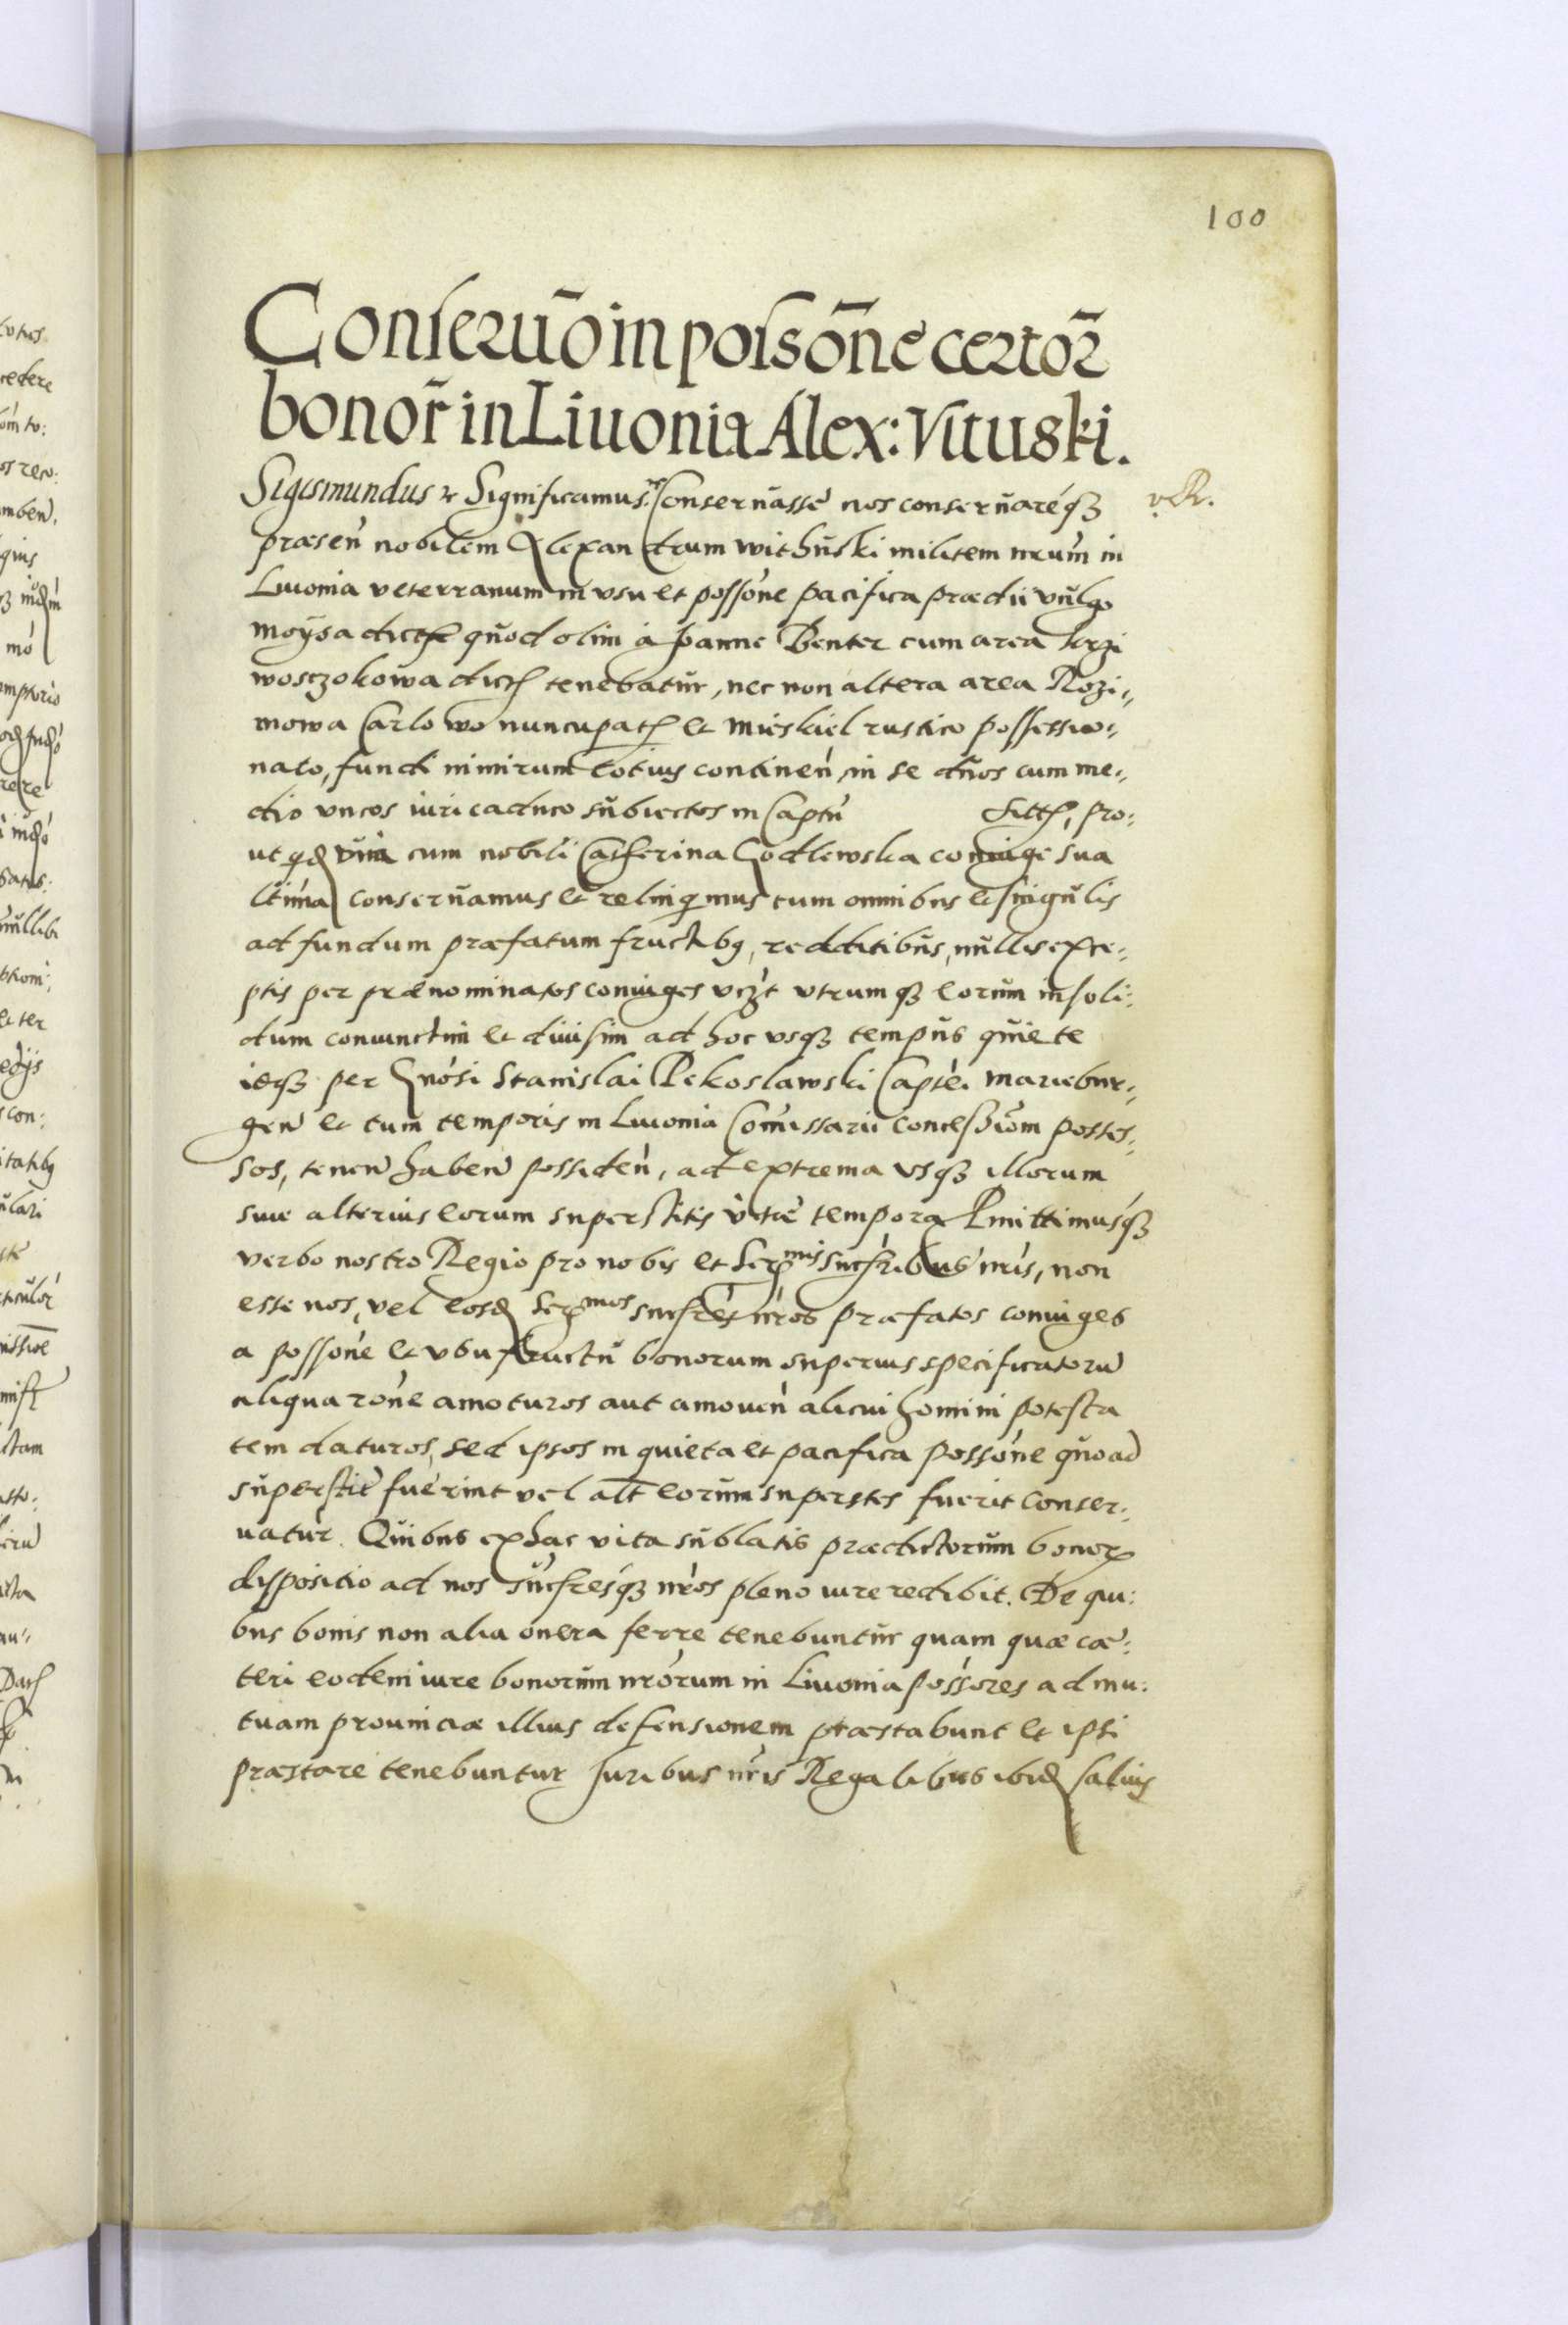 100
Conseruõ in possõne certoꝝ
bonoꝝ in Liuonia Alex: Vituski.
Sigismundus ꝛc Significamus ꝛc Conseruasse nos conseruareq3 v.R.
præseñ nobilem Alexandrum withuski militem nrum in
Liuonia veterranum in vsu et possone pacifica prædii vulgo
moysa dict quod olim à Joanne Benter cum area
woszokowa dict tenebatur, nec non altera area Rozi-
mowa Carlowo nuncupat et Mieskiel rustico possessio-
nato, fundi nimirum totius continen, in se duos cum me-
dio vncos iuri caduco subiectos in Captu sitt, pro-
ut qd vna cum nobili Catherina Godlewska coniuge sua
ltima conseruamus et relinqimus cum omnibus et singulis
ad fundum præfatum fructibq, redditibus, nullis exce-
ptis per prænominatos coniuges vczt vtrumq3 eorum insoli-
dum coniunctim et diuisim ad hoc vsq3 tempus quiete
ieq3 per Gnosi Stanislai Pekoslawski Captei Mariebur-
gen et tum temporis in Liuonia Comissarii concessiom posses-
sos, tenen haben possiden, ad extrema vsq3 illorum
siue alterius eorum superstitis vitæ tempora Pmittimusq3
verbo nostro Regio pro nobis et Ser mis sucsribus nris, non
esse nos, vel eosd Ser mos sucsres nros præfatos coniuges
a possone et vsufructu bonorum superius specificatorũ
aliqua rone amoturos aut amouen alicui homini potesta
tem daturos, sed ipsos in quieta et pacifica possone quoad
superstit fuerint vel alt eorum superstes fuerit conser-
uatur. Quibus ex hac vita sublatis prædictorum bonoꝝ
dispositio ad nos sucsresq3 nros pleno iure redibit. De qui-
bus bonis non alia onera ferre tenebuntur quam quæ cæ-
teri eodem iure bonorum nrorum in Liuonia possores ad mu-
tuam prouinciæ illius defensionem præstabunt et ipsi
præstare tenebuntur Juribus nris Regalibus ibid saluis